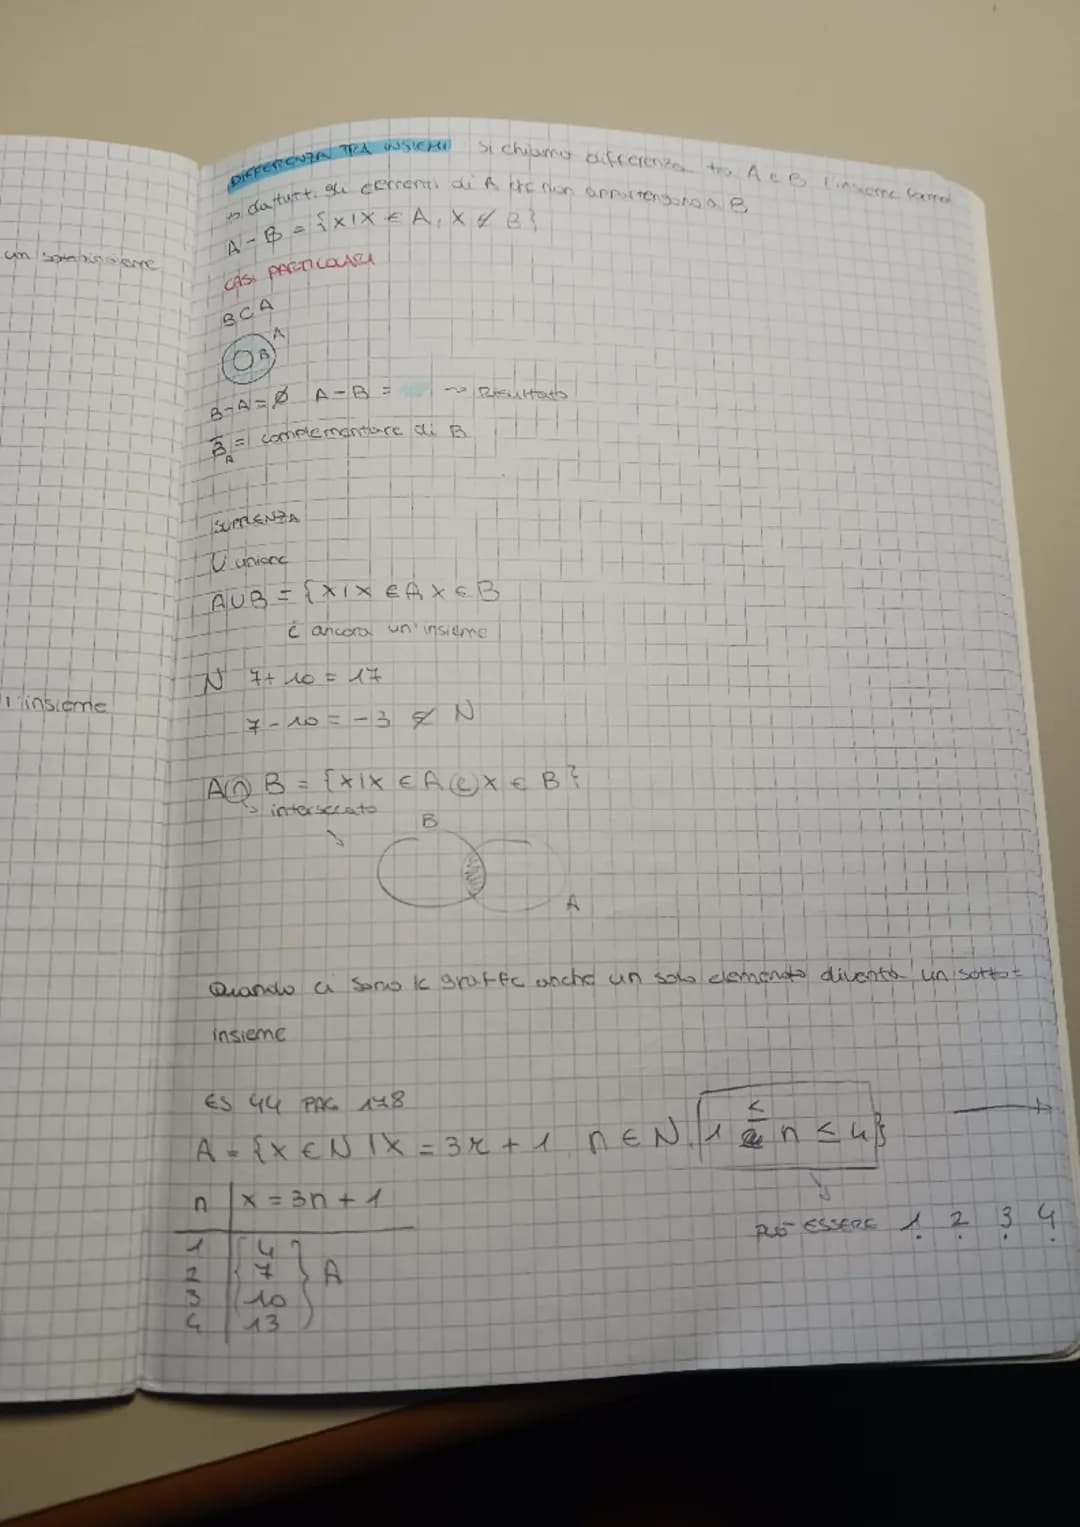 un sottoinsieme
l'insieme
DIFFERENZA TRA INSIEMI si chiama differenza tra A e B l'insieme forma
to da tutti gli elementi di A che non appartengono a B
A - B = {x | x ∈ A, x ∉ B}
CASI PARTICOLARI
B ⊂ A
A
B
B-A=∅ A-B = → Risultato
B̅_A = complementare di B
U unione
A∪B = {x | x ∈ A, x ∈ B
è ancora un'insieme
N 7+10 = 17
7-10 = -3 ∉ N
A ∩ B = {x | x ∈ A e x ∈ B}
→ intersecato
B
A
Quando ci sono le graffe anche un solo elemento diventa un sotto-
insieme
ES 44 PAG 178
A = {x ∈ N | x = 3n + 1, n ∈ N, 1 ≤ n ≤ 4}
n | x = 3n + 1
PUÒ ESSERE 1 2 3 4
1 4
2 7 } A
3 10
4 13